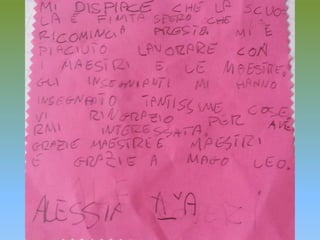 MI DISPIACE CHE LA SCUO-
LA È FINITA SPERO CHE
RICOMINCIA PRESTO. MI È
PIACIUTO LAVORARE CON
I MAESTRI E LE MAESTRE.
GLI INSEGNIANTI MI HANNO
INSEGNATO TANTISSIME COSE.
VI RINGRAZIO PER AVE
RMI INTERESSATA.
GRAZIE MAESTRE E MAESTRI
E GRAZIE A MAGO LEO.
ALESSIA IVA